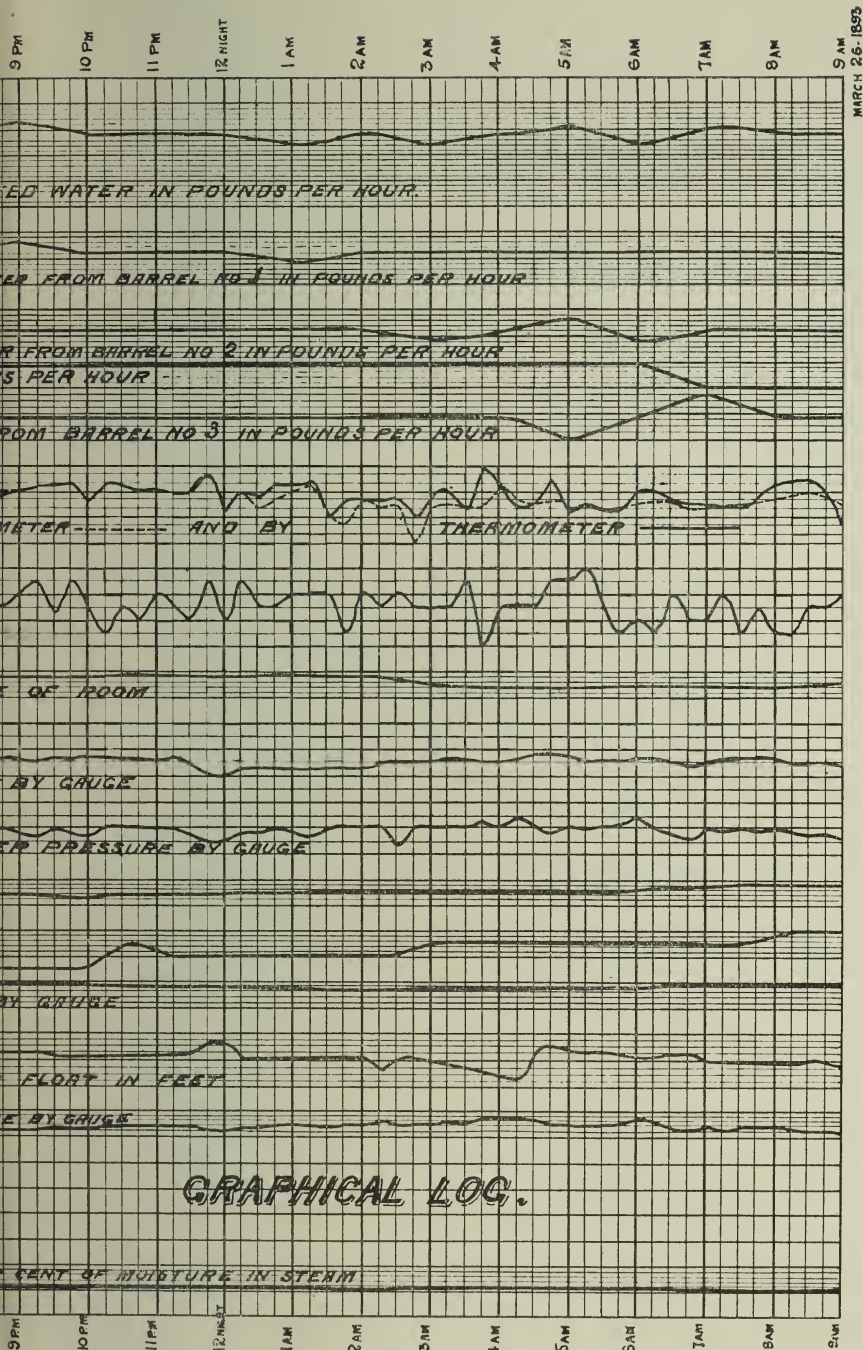 9 PM 10 PM 11 PM 12 NIGHT 1 AM 2 AM 3 AM 4 AM 5 AM 6 AM 7 AM 8 AM 9 AM
MARCH 26-1893
WATER IN POUNDS PER HOUR.
FROM BARREL NO 1 IN POUNDS PER HOUR
R FROM BARREL NO 2 IN POUNDS PER HOUR
S PER HOUR
ROM BARREL NO 3 IN POUNDS PER HOUR
METER AND BY THERMOMETER
E OF ROOM
BY GAUGE
ER PRESSURE BY GAUGE
BY GAUGE
FLOAT IN FEET
E BY GAUGE
GRAPHICAL LOG.
CENT OF MOISTURE IN STEAM
9 PM 10 PM 11 PM 12 NIGHT 1 AM 2 AM 3 AM 4 AM 5 AM 6 AM 7 AM 8 AM 9 AM